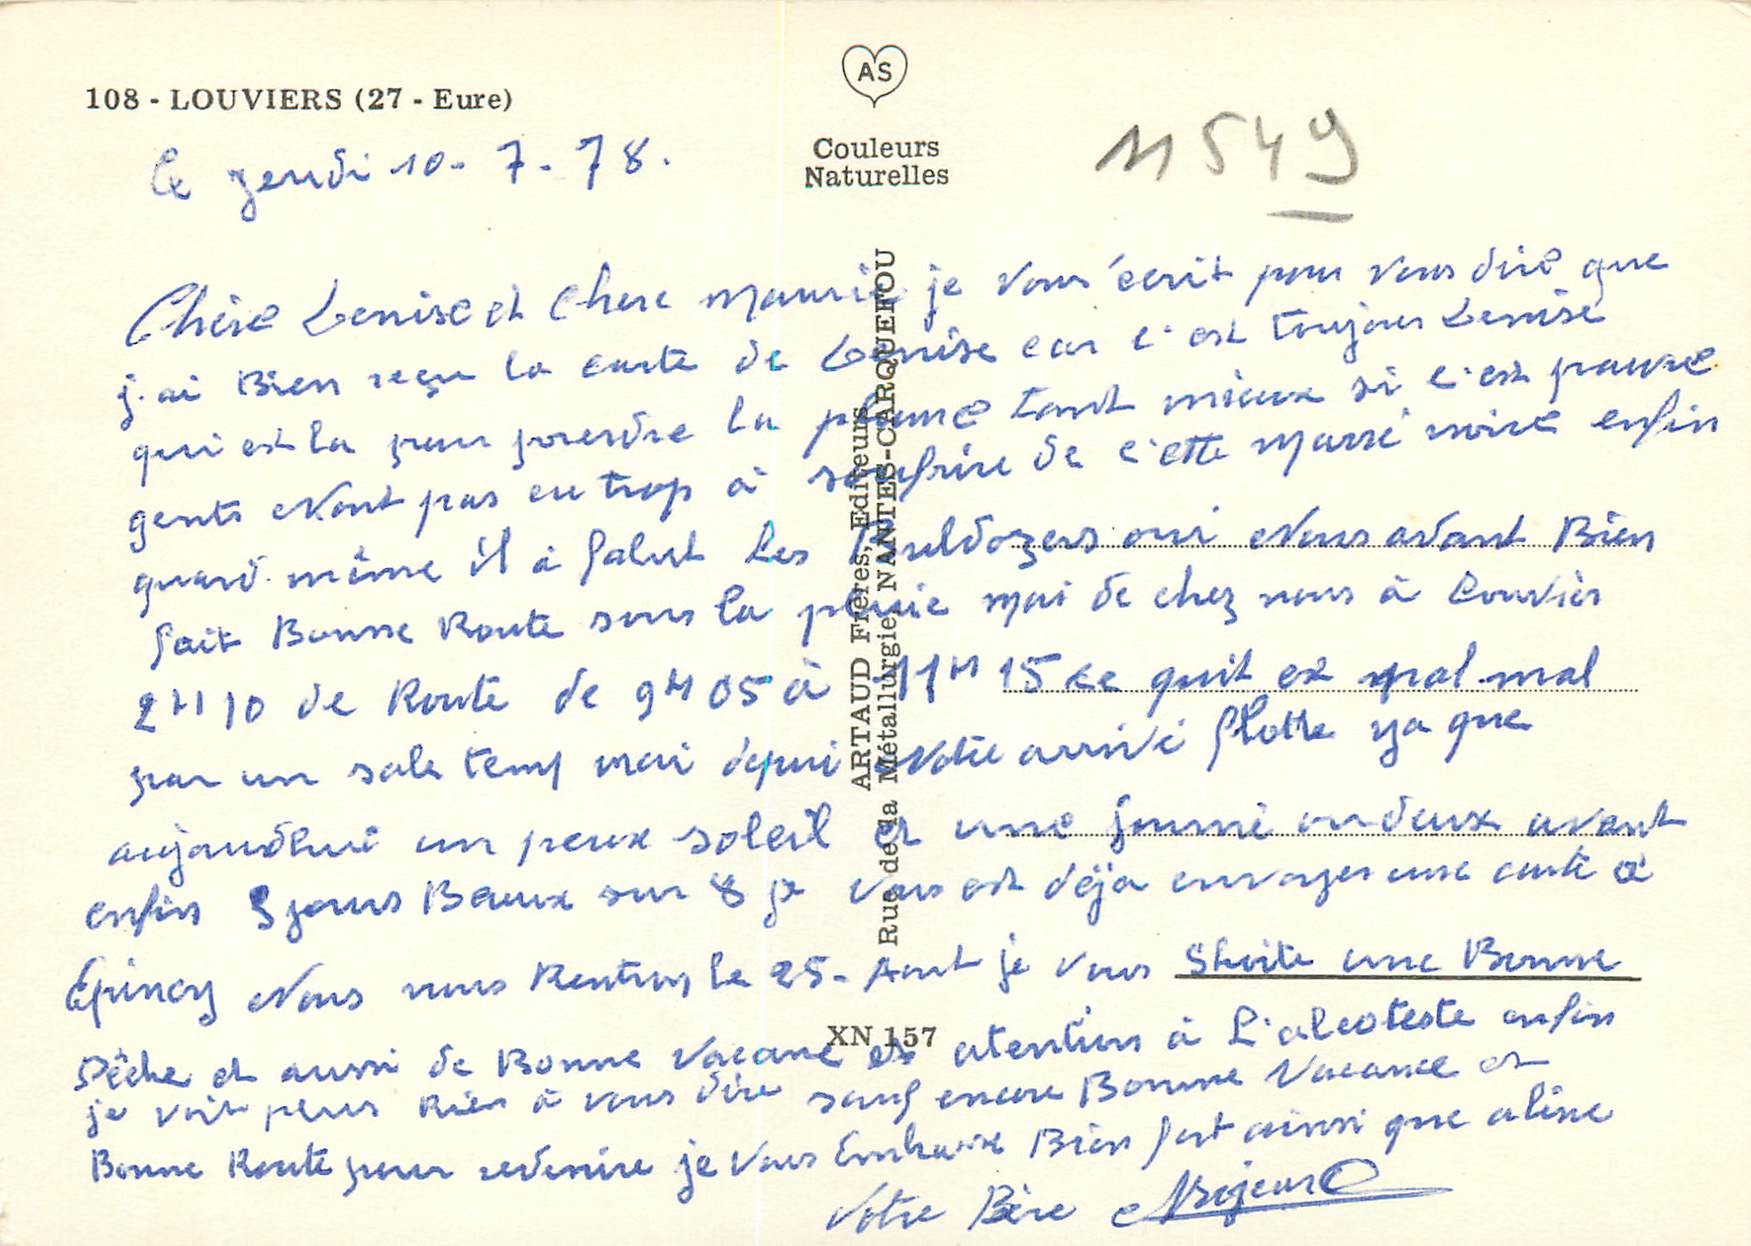 108 - LOUVIERS (27 - Eure)
AS
Couleurs
Naturelles
11549
Le jeudi 10-7-78.
Chère Denise et Chere Maurice je vous écrit pour vous dire que
j'ai Bien reçu la carte de Denise car c'est toujours Denise
qui est la pour prendre la plume tant mieux si c'est pauvre
gents n'ont pas eu trop à soufrire de c'ette marré noire enfin
quand même il à falut Les Bouldozers oui Nous avont Bien
fait Bonne Route sous la pluie moi de chez nous à Louviers
2H10 de Route de 9H05 à 11H15 ce quit et pal mal
par un sale temp moi depui Notre arrivé flotte ya que
aujourdhui un peux soleil et une journé ou deux avant
enfin 3 jours Beaux sur 8 je vous est déja envoyer une carte a
Epincy Nous nous Rentron le 25. Aout je vous Shoite une Bonne
Pêche et aussi de Bonne Vacance et atention à L'alcoteste enfin
je voit plus Rien à vous dire sauf encore Bonne Vacance et
Bonne Route pour revenire je vous Embrasse Bien fort ainsi que aline
Votre Père
ARTAUD Frères, Editeurs
Rue de la Métallurgie, NANTES-CARQUEFOU
XN 157